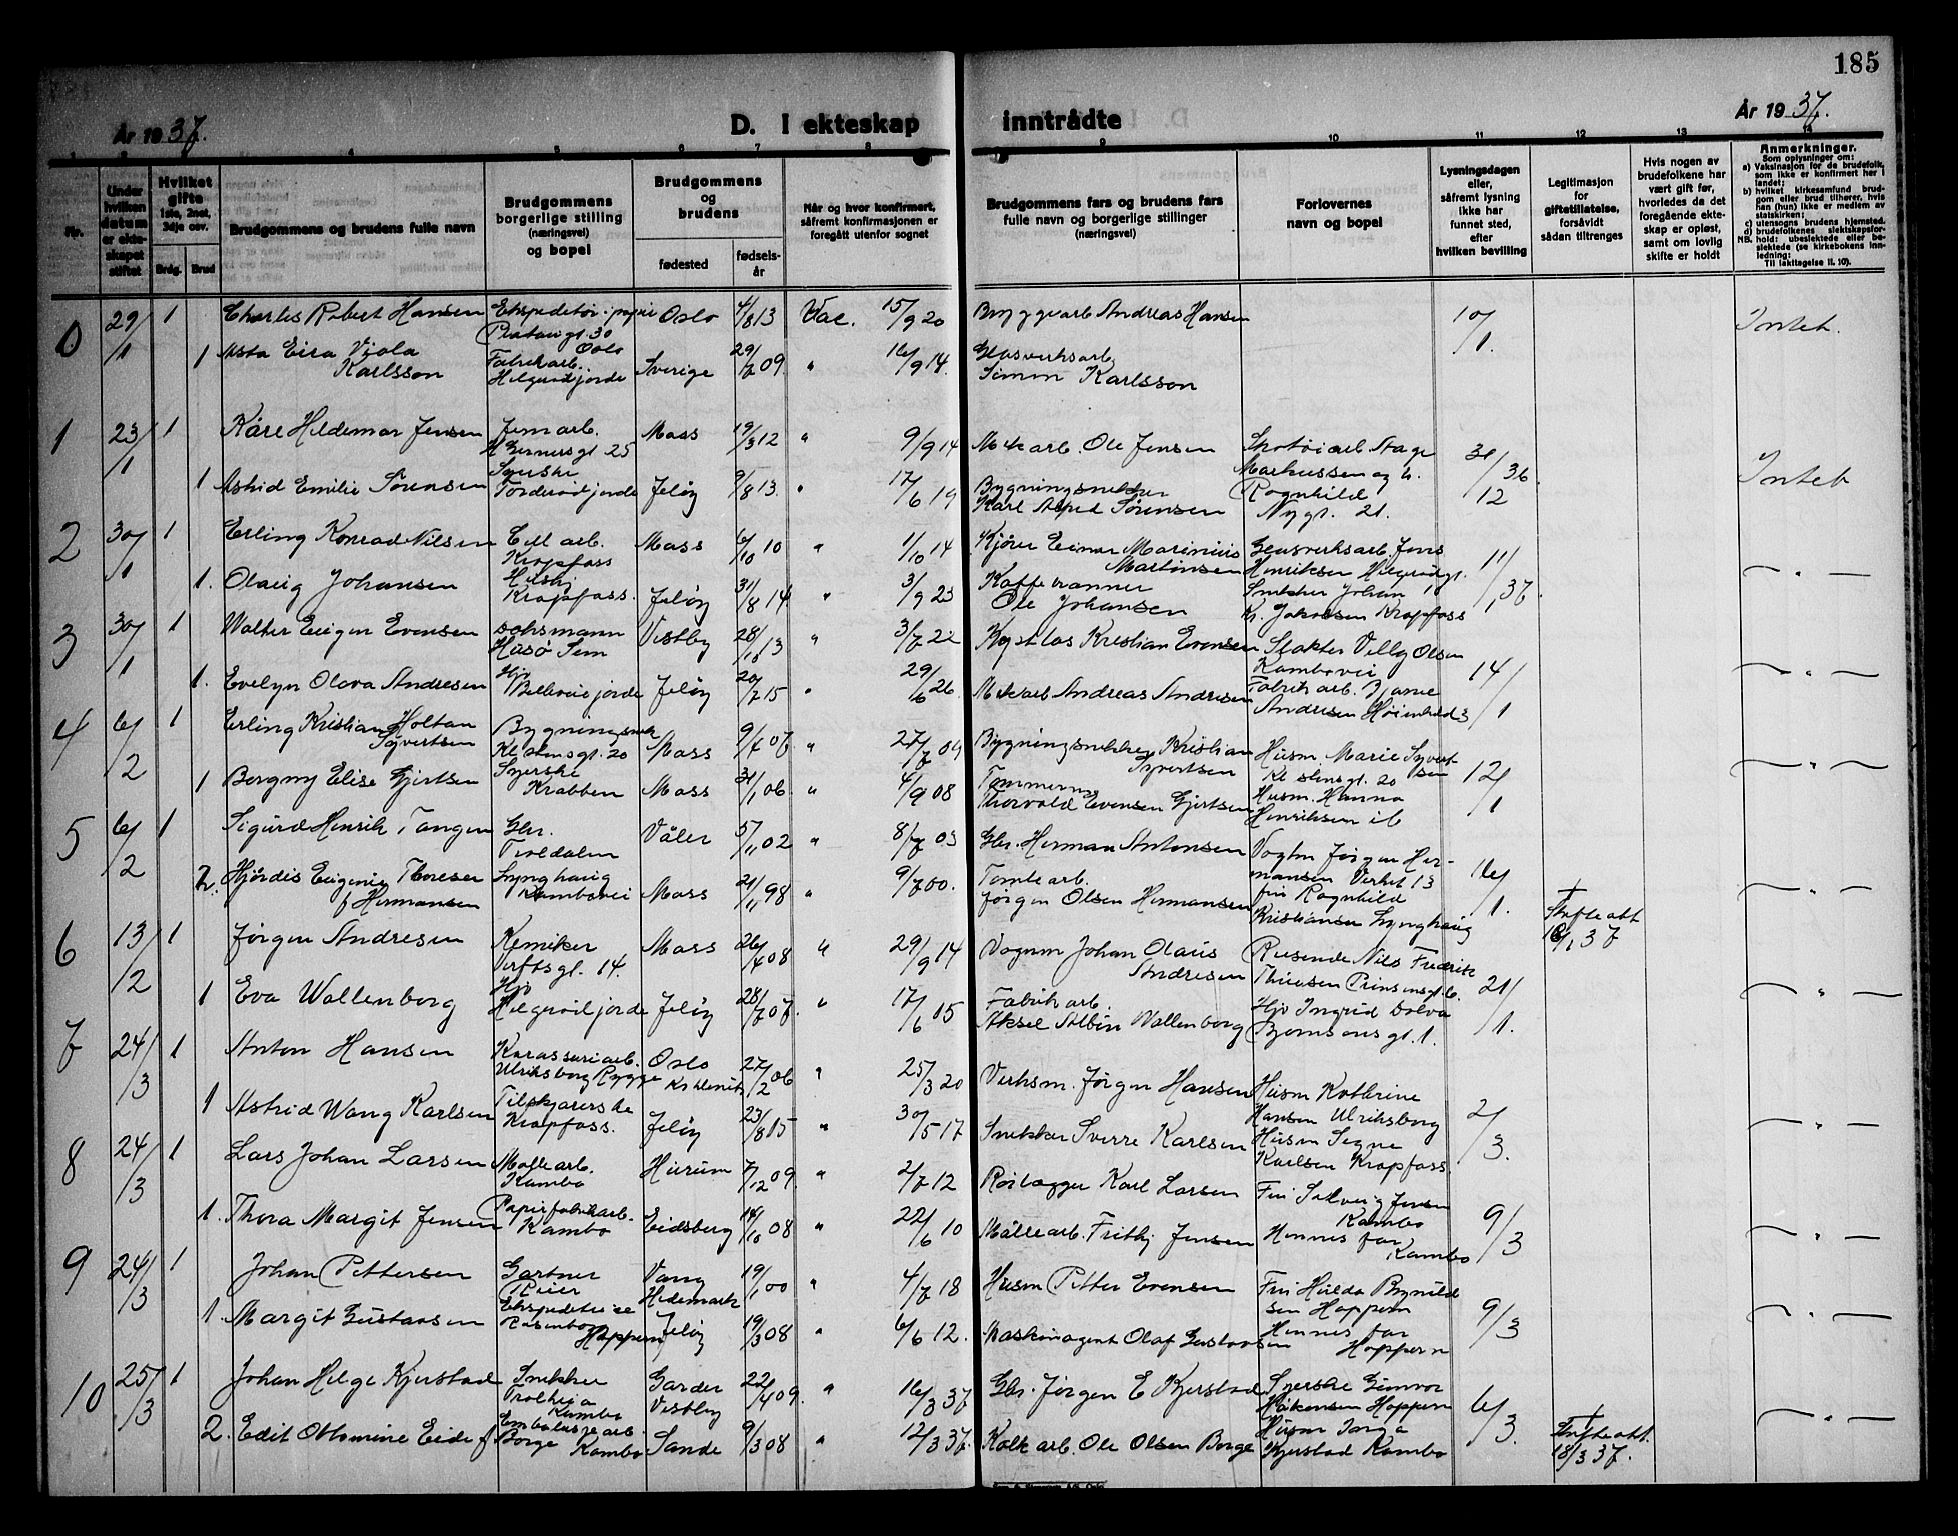 185
År 1937.
D. I ekteskap inntrådte
År 1937.
1 2 3 4 5 6 7 8 9 10 11 12 13 13
Nr.
Under hvilken datum er ekteskapet stiftet
Hvilket gifte 1ste, 2net, 3dje osv.
Brdg. Brud
Brudgommens og brudens fulle navn
Brudgommens borgerlige stilling (næringsvei) og bopel
Brudgommens og brudens
fødested
fødselsår
Når og hvor konfirmert, såfremt konfirmasjonen er foregått utenfor sognet
Brudgommens fars og brudens fars fulle navn og borgerlige stillinger (næringsvei)
Forlovernes navn og bopel
Lysningsdagen eller, såfremt lysning ikke har funnet sted, efter hvilken bevilling
Legitimasjon for giftetillatelse, forsåvidt sådan tiltrenges
Hvis nogen av brudefolkene har vært gift før, hvorledes da det foregående ekteskap er opløst, samt om lovlig skifte er holdt
Anmerkninger.
Som oplysninger om:
a) Vaksinasjon for de brudefolk, som ikke er konfirmert her i landet;
b) hvilket kirkesamfund brudgom eller brud tilhører, hvis han (hun) ikke er medlem av statskirken;
c) utensogns brudens hjemsted.
d) brudefolkenes slektskapsforhold: ubeslektede eller beslektede (se kirkebokens innledning:
NB. Til iakttagelse II. 10).
0 29/1 1 Charles Robert Hansen Ekspeditør i papir Oslo 4/8 13 Vac. 15/9 20 Byggearb Andreas Hansen 10/1. Inteb.
Platous gt. 30 Oslo
1 Asta Eira Viola Karlsson Fabrikarb. Helgerødjorde Sverige 29/7 09. " 16/9 14. Glasverksarb. Simon Karlsson
1 23/1 1 Kåre Hildemar Jensen Jernarb. Moss 19/3 12 " 9/9 14 Mek arb. Ole Jensen Skotøiarb Aage
H Gerners gt 25 Markussen og h. 31/12 36.
1 Astrid Emilie Sørensen Syerske Torderødjorde Jeløy 9/8 13. " 17/6 19 Bygningsnekker Ragnhild Inteb
Karl Alfred Sørensen Nygt. 21.
2 30/1 1 Erling Konrad Nilsen Cell arb. Krapfoss Moss 6/10 10 " 1/10 14 Kjører Einar Marinius Martinsen Glasverksarb. Jens
Henriksen Helgerødgt. 11/1 37
1. Olaug Johansen Krapfoss. Jeløy 31/8 14. " 3/9 23 Kaffebrenner Snekker Johan
Ole Johansen Kr. Jakobsen Krapfoss
3 30/1 1 Walter Eugen Evensen Husø Sem Vestby 28/10 13 " 3/7 22 Kystlos Kristian Evensen Slakter Velly Olsen
Kambovei 14/1
1. Evelyn Olava Andresen Hjv Bellevuejorde Jeløy 20/2 15 " 29/6 26 Mek arb Andreas Andresen Fabrikarb. Bjarne
Andresen
4 6/2 1 Erling Kristian Holtan Syvertsen Bygningsnek Kl stensgt. 20 Moss 9/7 07 " 27/7 09 Bygningsnekker Kristian Syvertsen Husm. Marie Syvertsen
Kl stensgt. 20 12/1
1 Borgny Elise Gjertsen Syerske Krabben Moss 31/1 06. " 4/9 08 Tømmerm. Husm. Hanna
Thorvald Evensen Gjertsen Henriksen ib
5 6/2 1 Sigurd Henrik Tangen Gbr. Tveldalen Våler 5/11 02 " 8/7 03 Gbr. Herman Antonsen Vogtm Jørgen Hermansen Verket 13 16/1.
2. Hjørdis Eugenie Thoresen f Hermansen Lynghaug Kambovei Moss 21/11 98 " 9/7 00. Tomtearb. Fru Ragnhild
Jørgen Olsen Hermansen Kristiansen Lynghaug † Skifteatt 16/1 37
6 13/2 1 Jørgen Andresen Kemiker Verftsgt. 14. Moss 26/4 08 " 29/9 14 Vognm Johan Olaus Andresen Reisende Nils Fredrik
Thuesen Prinsensgt 6. 21/1.
1 Eva Wallenborg Hjv Helgerødjorde Jeløy 28/7 07. " 17/6 15 Fabrikarb. Hjv Ingrid Dolva
Aksel Albin Wallenborg Bjørnsonsgt. 1.
7 24/3 1 Anton Hansen Karasseriarb. Ulriksborg Rygge Oslo 27/2 06 " 25/3 20 Verksm. Jørgen Hansen Husm Kathrine
Hansen Ulriksborg 2/3.
1 Astrid Wang Karlsen Tilskjærerske Krapfoss. Jeløy 23/8 15 " 30/5 17 Snekker Sverre Karlsen Husm Signe
Karlsen Krapfoss
8 24/3 1 Lars Johan Larsen Mølle arb. Kambo Hurum 7/12 09. " 2/7 12 Rørlægger Karl Larsen Fru Solveig Jensen
Kambo 9/3
1. Thora Margit Jensen Papirfabrikarb. Kambo Eidsberg 14/10 08 " 22/6 10 Møllearb. Frithj Jensen Hennes far
Kambo
9 24/3 1 Johan Pettersen Gartner Reier Vang Hedemark 19/1 00 " 4/7 18 Husm Petter Evensen Fru Hulda Brynildsen Hoppern 9/3
1. Margit Gustavsen Ekspeditrise Rosenborg Hoppern Jeløy 19/3 08 " 6/6 12. Maskinagent Olaf Gustavsen Hennes far
Hoppern
10 25/3 1 Johan Helge Kjerstad Snekker Trolheia Kambo Garder Vestby 22/4 09. " 16/3 37 Gbr. Jørgen E Kjerstad Syerske Gunvor
Håkensen Hoppern 6/3.
2. Edit Ottomine Eide f Borge Emballasjearb Kambo Sande 9/3 08 " 12/3 37. Kalkarb. Ole Olsen Borge Husm Inga
Kjerstad Kambo † Skifteatt. 18/3 37.